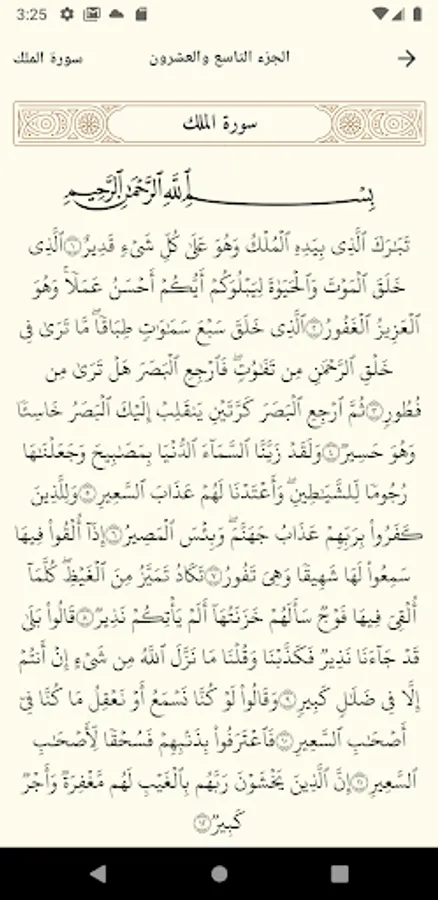 3:25
سورة الملك الجزء التاسع والعشرون
سورة الملك
بِسْمِ ٱللَّهِ ٱلرَّحْمَٰنِ ٱلرَّحِيمِ
تَبَٰرَكَ ٱلَّذِى بِيَدِهِ ٱلْمُلْكُ وَهُوَ عَلَىٰ كُلِّ شَىْءٍ قَدِيرٌ ۝١ ٱلَّذِى
خَلَقَ ٱلْمَوْتَ وَٱلْحَيَوٰةَ لِيَبْلُوَكُمْ أَيُّكُمْ أَحْسَنُ عَمَلًا ۚ وَهُوَ
ٱلْعَزِيزُ ٱلْغَفُورُ ۝٢ ٱلَّذِى خَلَقَ سَبْعَ سَمَٰوَٰتٍ طِبَاقًا ۖ مَّا تَرَىٰ فِى
خَلْقِ ٱلرَّحْمَٰنِ مِن تَفَٰوُتٍ ۖ فَٱرْجِعِ ٱلْبَصَرَ هَلْ تَرَىٰ مِن
فُطُورٍ ۝٣ ثُمَّ ٱرْجِعِ ٱلْبَصَرَ كَرَّتَيْنِ يَنقَلِبْ إِلَيْكَ ٱلْبَصَرُ خَاسِئًا
وَهُوَ حَسِيرٌ ۝٤ وَلَقَدْ زَيَّنَّا ٱلسَّمَآءَ ٱلدُّنْيَا بِمَصَٰبِيحَ وَجَعَلْنَٰهَا
رُجُومًا لِّلشَّيَٰطِينِ ۖ وَأَعْتَدْنَا لَهُمْ عَذَابَ ٱلسَّعِيرِ ۝٥ وَلِلَّذِينَ
كَفَرُوا۟ بِرَبِّهِمْ عَذَابُ جَهَنَّمَ ۖ وَبِئْسَ ٱلْمَصِيرُ ۝٦ إِذَآ أُلْقُوا۟ فِيهَا
سَمِعُوا۟ لَهَا شَهِيقًا وَهِىَ تَفُورُ ۝٧ تَكَادُ تَمَيَّزُ مِنَ ٱلْغَيْظِ ۖ كُلَّمَآ
أُلْقِىَ فِيهَا فَوْجٌ سَأَلَهُمْ خَزَنَتُهَآ أَلَمْ يَأْتِكُمْ نَذِيرٌ ۝٨ قَالُوا۟ بَلَىٰ
قَدْ جَآءَنَا نَذِيرٌ فَكَذَّبْنَا وَقُلْنَا مَا نَزَّلَ ٱللَّهُ مِن شَىْءٍ إِنْ أَنتُمْ
إِلَّا فِى ضَلَٰلٍ كَبِيرٍ ۝٩ وَقَالُوا۟ لَوْ كُنَّا نَسْمَعُ أَوْ نَعْقِلُ مَا كُنَّا فِىٓ
أَصْحَٰبِ ٱلسَّعِيرِ ۝١٠ فَٱعْتَرَفُوا۟ بِذَنۢبِهِمْ فَسُحْقًا لِّأَصْحَٰبِ
ٱلسَّعِيرِ ۝١١ إِنَّ ٱلَّذِينَ يَخْشَوْنَ رَبَّهُم بِٱلْغَيْبِ لَهُم مَّغْفِرَةٌ وَأَجْرٌ
كَبِيرٌ ۝١٢